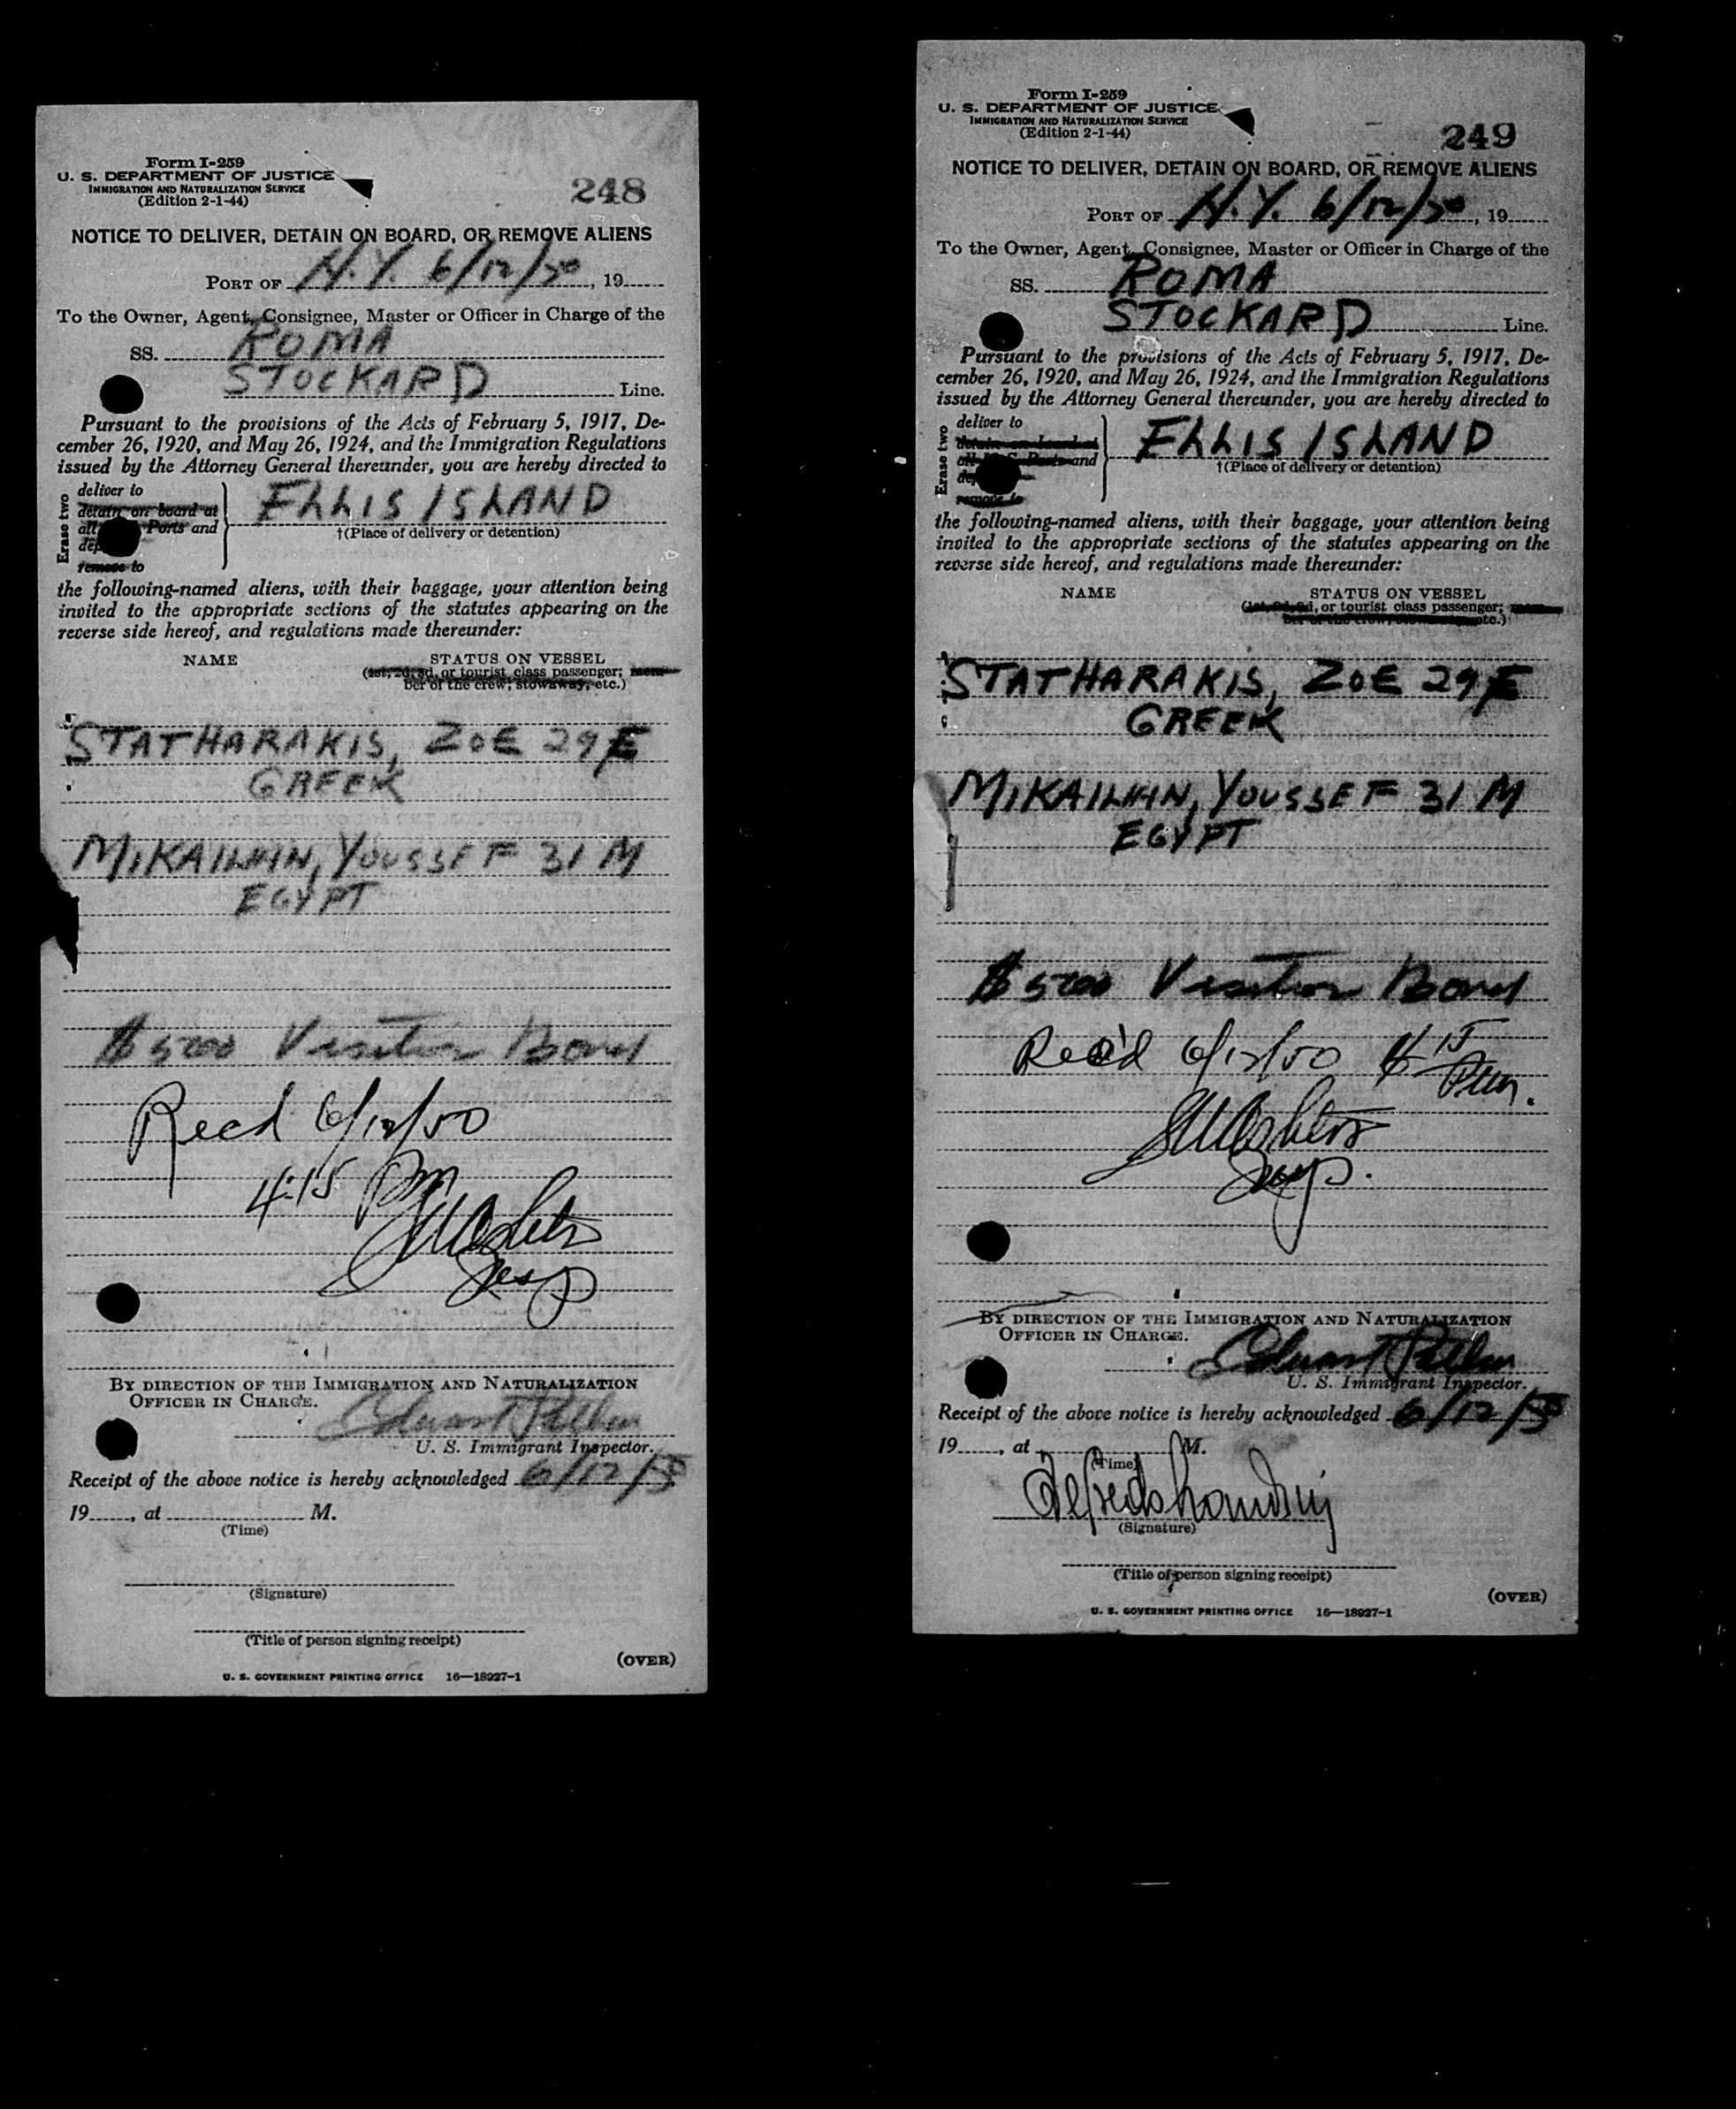 Form I-259
U. S. DEPARTMENT OF JUSTICE
IMMIGRATION AND NATURALIZATION SERVICE
(Edition 2-1-44)
248
NOTICE TO DELIVER, DETAIN ON BOARD, OR REMOVE ALIENS
PORT OF N.Y. 6/12/50, 19
To the Owner, Agent, Consignee, Master or Officer in Charge of the
SS. ROMA
STOCKARD Line.
Pursuant to the provisions of the Acts of February 5, 1917, De-
cember 26, 1920, and May 26, 1924, and the Immigration Regulations
issued by the Attorney General thereunder, you are hereby directed to
Erase two
deliver to
detain on board at
all Ports and
dep
remove to
ELLIS ISLAND
†(Place of delivery or detention)
the following-named aliens, with their baggage, your attention being
invited to the appropriate sections of the statutes appearing on the
reverse side hereof, and regulations made thereunder:
NAME STATUS ON VESSEL
(1st, 2d, 3d, or tourist class passenger; mem-
ber of the crew, stowaway, etc.)
STATHARAKIS, ZOE 29 F
GREEK
YOUSSEF 31 M
EGYPT
$ 500 Visitor Bond
Recd 6/12/50
4:15 PM
BY DIRECTION OF THE IMMIGRATION AND NATURALIZATION
OFFICER IN CHARGE.
U. S. Immigrant Inspector.
Receipt of the above notice is hereby acknowledged 6/12/50
19, at M.
(Time)
(Signature)
(Title of person signing receipt)
(OVER)
U. S. GOVERNMENT PRINTING OFFICE 16—18927-1
Form I-259
U. S. DEPARTMENT OF JUSTICE
IMMIGRATION AND NATURALIZATION SERVICE
(Edition 2-1-44)
249
NOTICE TO DELIVER, DETAIN ON BOARD, OR REMOVE ALIENS
PORT OF N.Y. 6/12/50, 19
To the Owner, Agent, Consignee, Master or Officer in Charge of the
SS. ROMA
STOCKARD Line.
Pursuant to the provisions of the Acts of February 5, 1917, De-
cember 26, 1920, and May 26, 1924, and the Immigration Regulations
issued by the Attorney General thereunder, you are hereby directed to
Erase two
deliver to
detain on board at
all U. S. Ports and
dep
remove to
ELLIS ISLAND
†(Place of delivery or detention)
the following-named aliens, with their baggage, your attention being
invited to the appropriate sections of the statutes appearing on the
reverse side hereof, and regulations made thereunder:
NAME STATUS ON VESSEL
(1st, 2d, 3d, or tourist class passenger; mem-
ber of the crew, stowaway, etc.)
STATHARAKIS, ZOE 29 F
GREEK
YOUSSEF 31 M
EGYPT
$ 500 Visitor Bond
Rec'd 6/12/50 4 15 Pm.
BY DIRECTION OF THE IMMIGRATION AND NATURALIZATION
OFFICER IN CHARGE.
U. S. Immigrant Inspector.
Receipt of the above notice is hereby acknowledged 6/12/50
19, at M.
(Time)
(Signature)
(Title of person signing receipt)
(OVER)
U. S. GOVERNMENT PRINTING OFFICE 16—18927-1